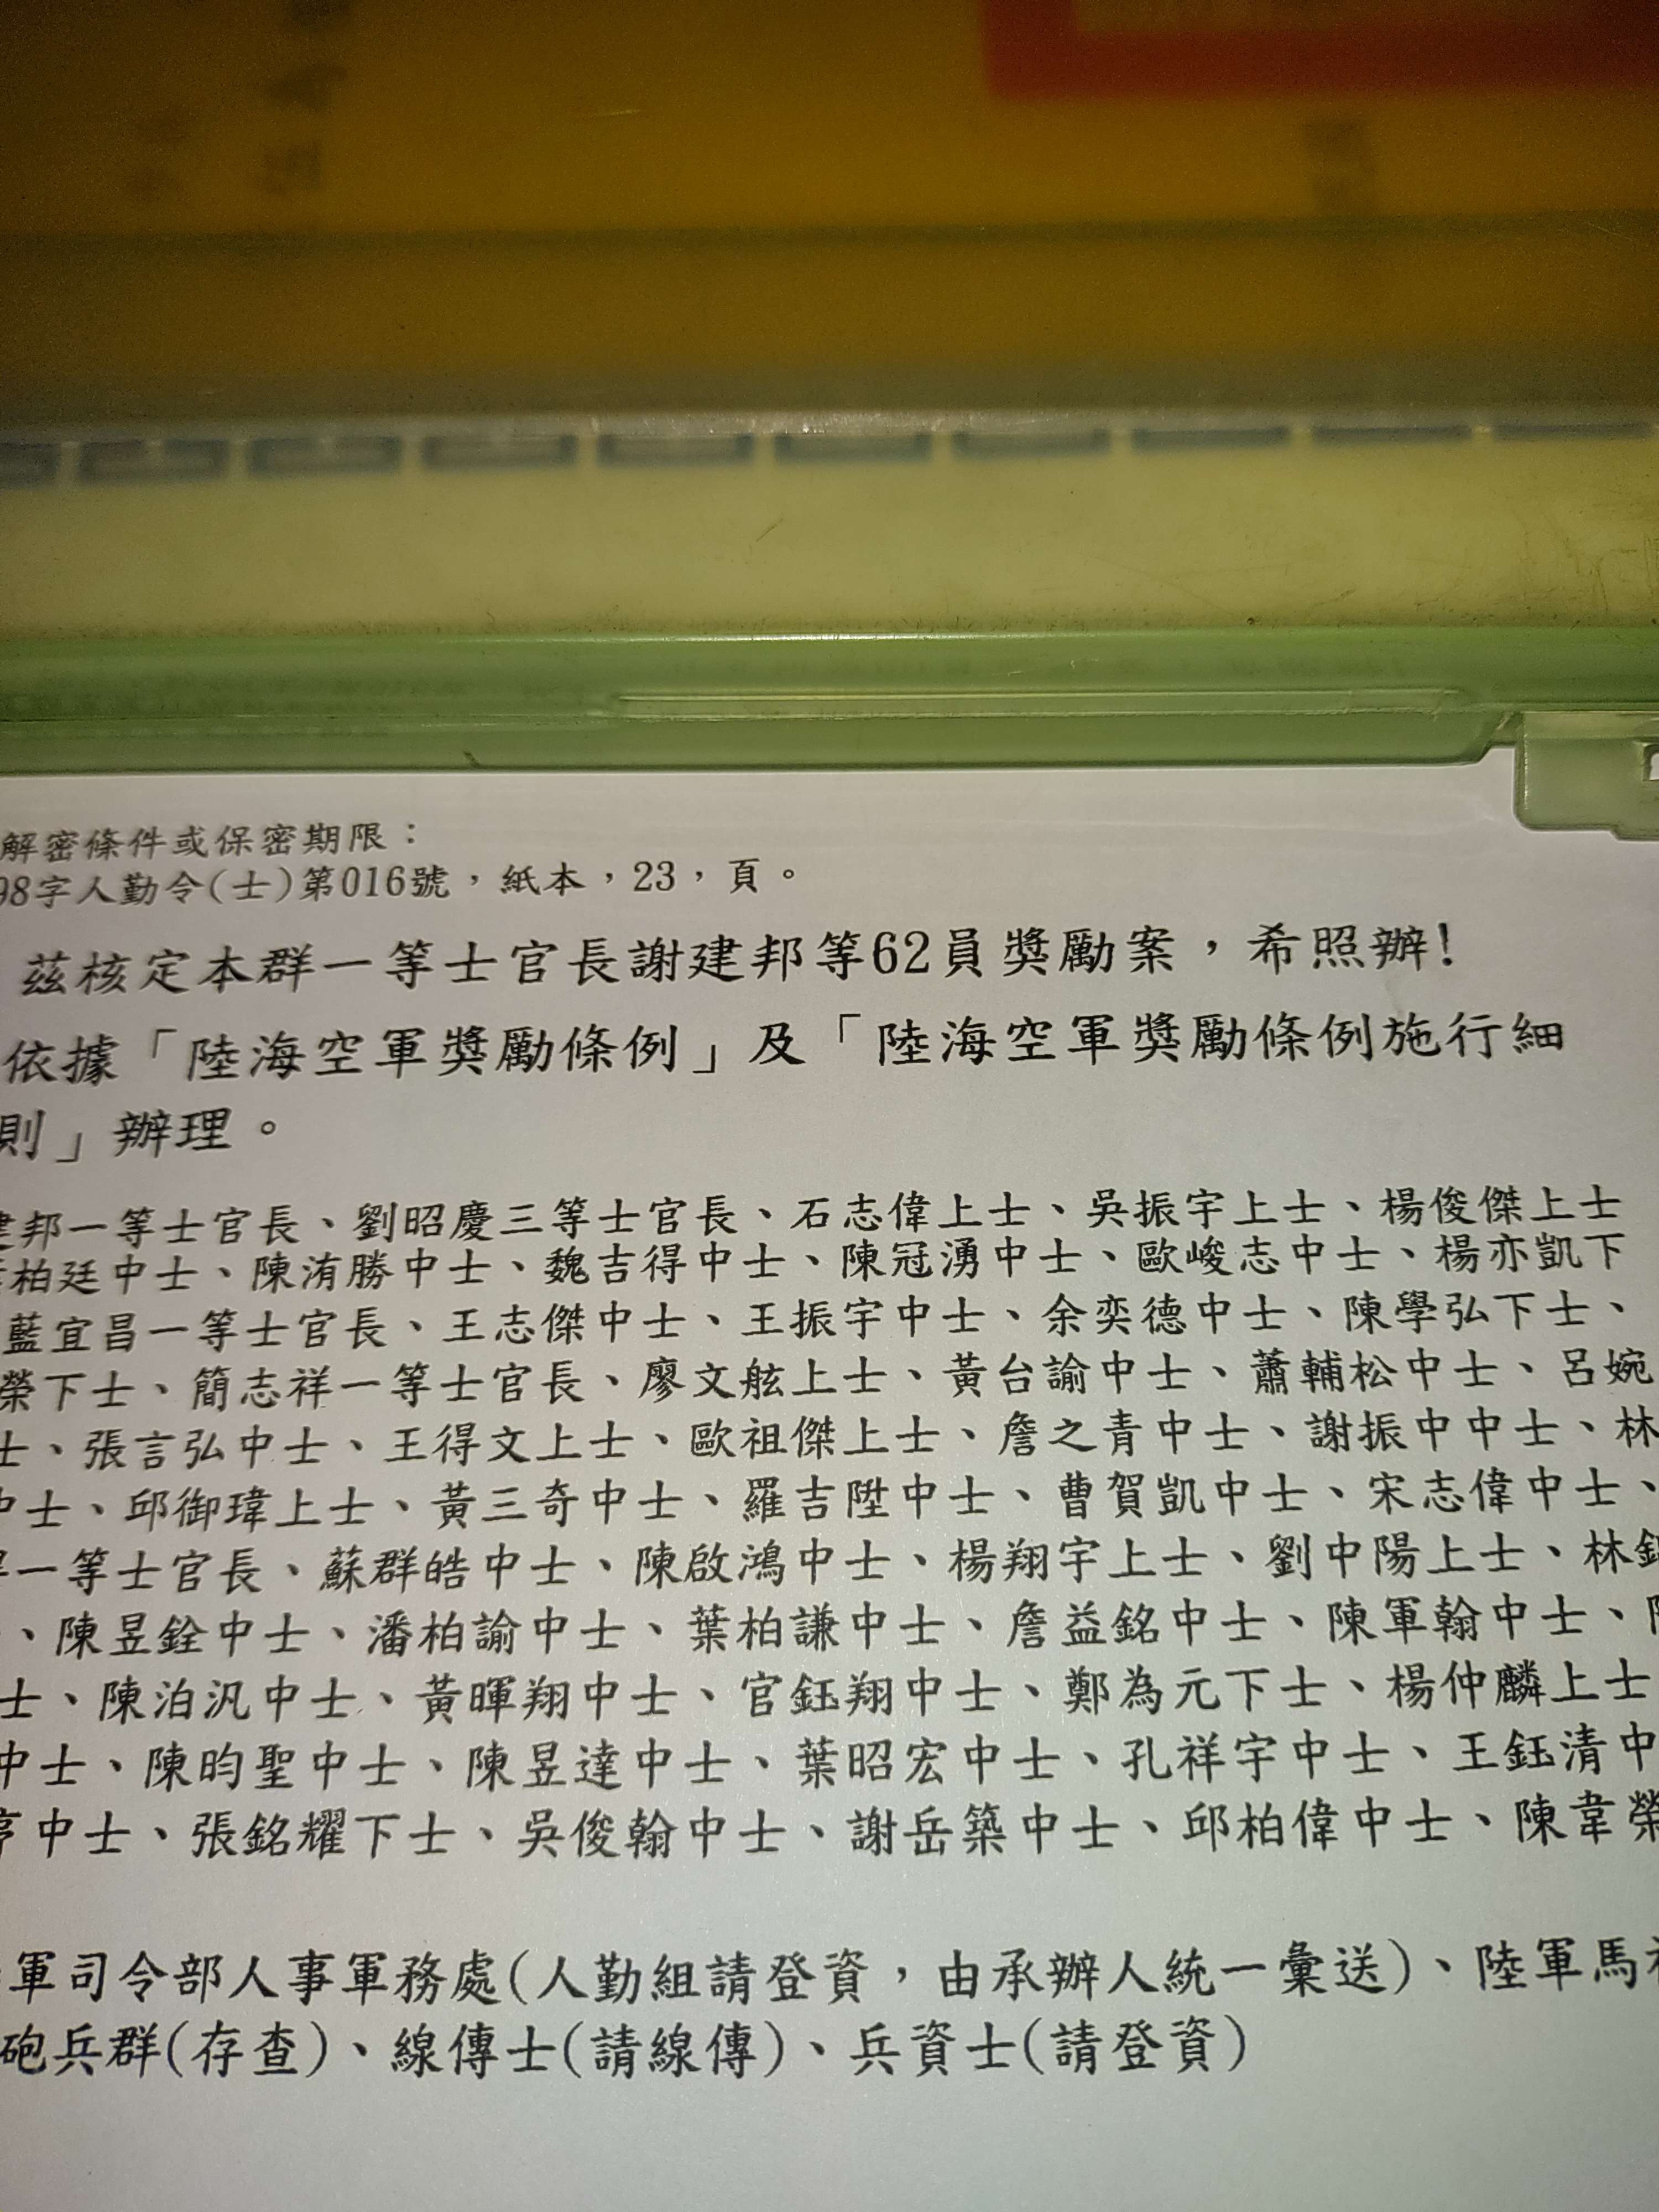 解密條件或保密期限：
98字人勤令(士)第016號，紙本，23，頁。
茲核定本群一等士官長謝建邦等62員獎勵案，希照辦!
依據「陸海空軍獎勵條例」及「陸海空軍獎勵條例施行細
則」辦理。
建邦一等士官長、劉昭慶三等士官長、石志偉上士、吳振宇上士、楊俊傑上士
柏廷中士、陳洧勝中士、魏吉得中士、陳冠湧中士、歐峻志中士、楊亦凱下
藍宜昌一等士官長、王志傑中士、王振宇中士、余奕德中士、陳學弘下士、
榮下士、簡志祥一等士官長、廖文舷上士、黃台諭中士、蕭輔松中士、呂婉
士、張言弘中士、王得文上士、歐祖傑上士、詹之青中士、謝振中中士、林
中士、邱御瑋上士、黃三奇中士、羅吉陞中士、曹賀凱中士、宋志偉中士、
一等士官長、蘇群皓中士、陳啟鴻中士、楊翔宇上士、劉中陽上士、林
、陳昱銓中士、潘柏諭中士、葉柏謙中士、詹益銘中士、陳軍翰中士、
士、陳泊汎中士、黃暉翔中士、官鈺翔中士、鄭為元下士、楊仲麟上士
中士、陳昀聖中士、陳昱達中士、葉昭宏中士、孔祥宇中士、王鈺清中
中士、張銘耀下士、吳俊翰中士、謝岳築中士、邱柏偉中士、陳韋榮
軍司令部人事軍務處(人勤組請登資，由承辦人統一彙送)、陸軍馬祖
砲兵群(存查)、線傳士(請線傳)、兵資士(請登資)